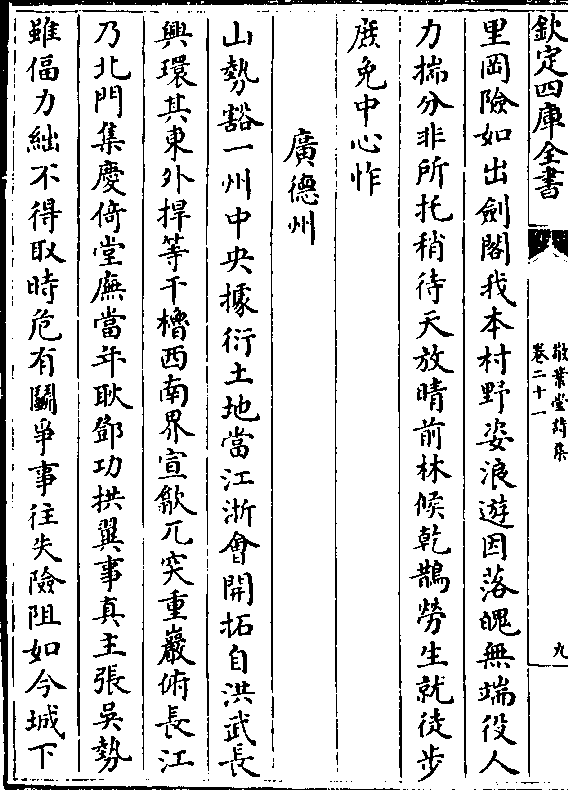 欽定四庫全書
敬業堂詩集
卷二十一
九
里岡險如出劍閣我本村野姿浪遊因落魄無端役人
力揣分非所托稍待天放晴前林候乾鵲勞生就徒步
庶免中心怍
廣德州
山勢豁一州中央據衍土地當江浙會開拓自洪武長
興環其東外捍等干櫓西南界宣歙兀突重巖俯長江
乃北門集慶倚堂廡當年耿鄧功拱翼事真主張吳勢
雖偪力絀不得取時危有鬭爭事往失險阻如今城下